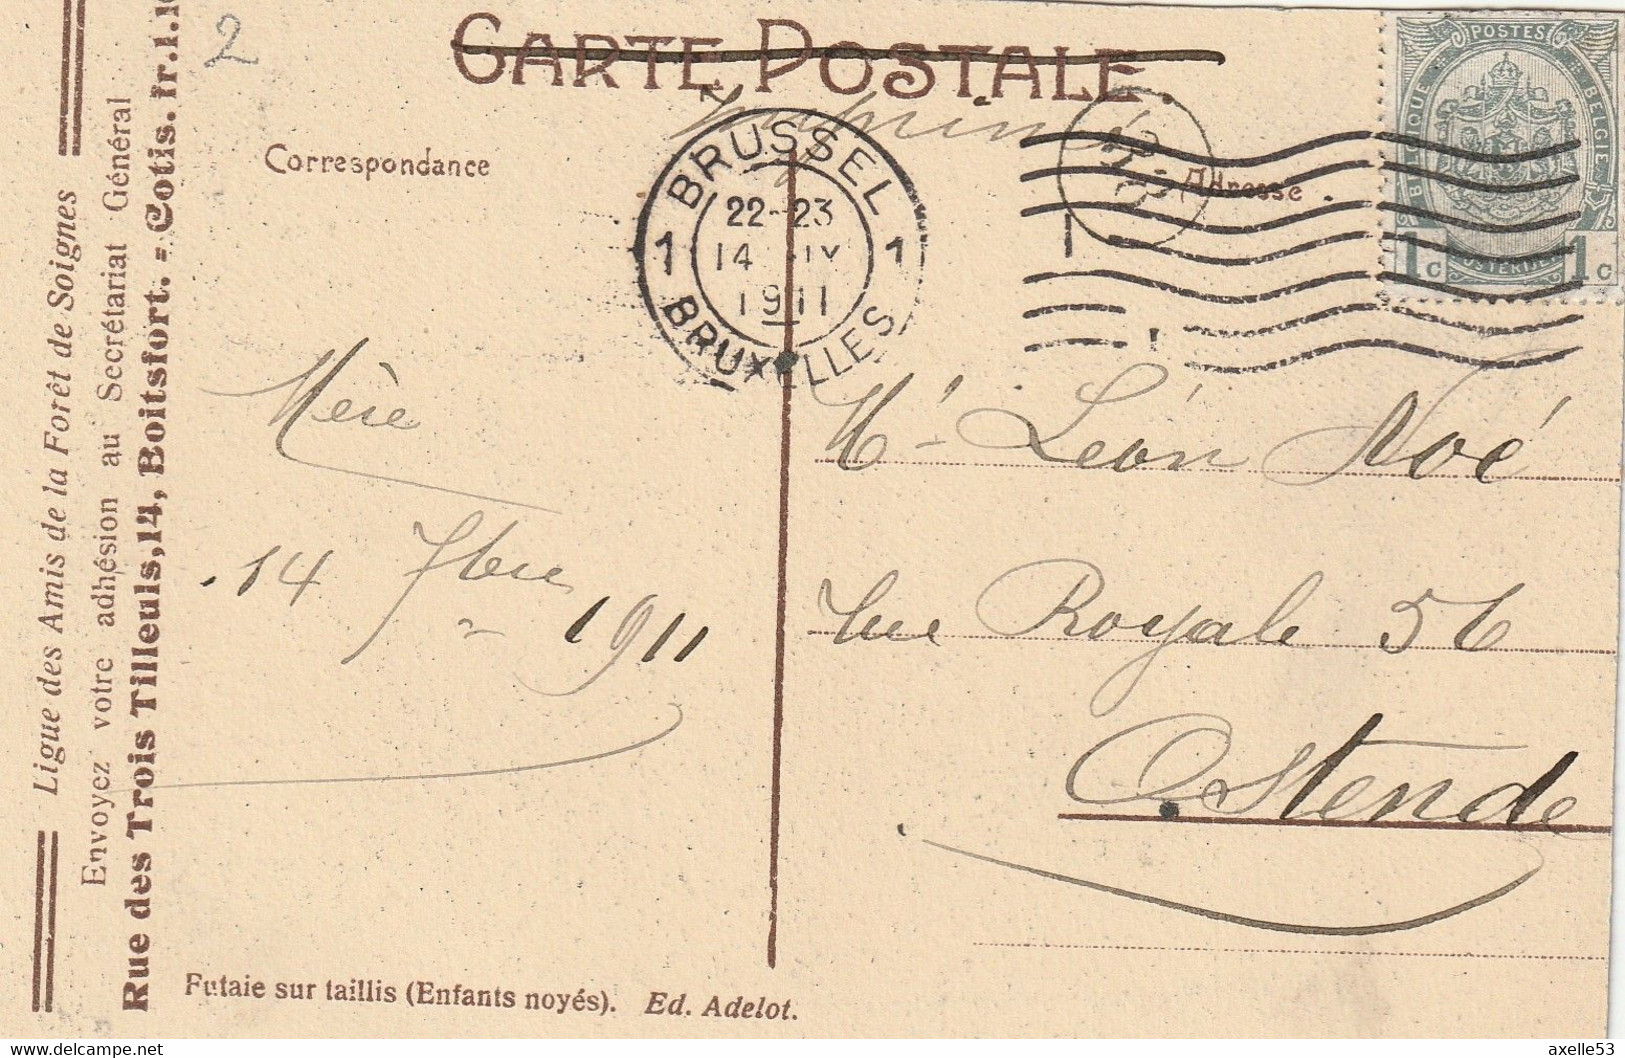 2
CARTE POSTALE.
Imprimé
Correspondance
Adresse.
BRUSSEL
22-23
1 14 IX 1
1911
BRUXELLES
POSTES
BELGIQUE BELGIE
1c 1c
Mère
14 7bre 1911
Mr Léon Noé
rue Royale 56
Ostende
Futaie sur taillis (Enfants noyés). Ed. Adelot.
Ligue des Amis de la Forêt de Soignes
Envoyez votre adhésion au Secrétariat Général
Rue des Trois Tilleuls, 14, Boitsfort. - Cotis. fr. 1.10
axelle53